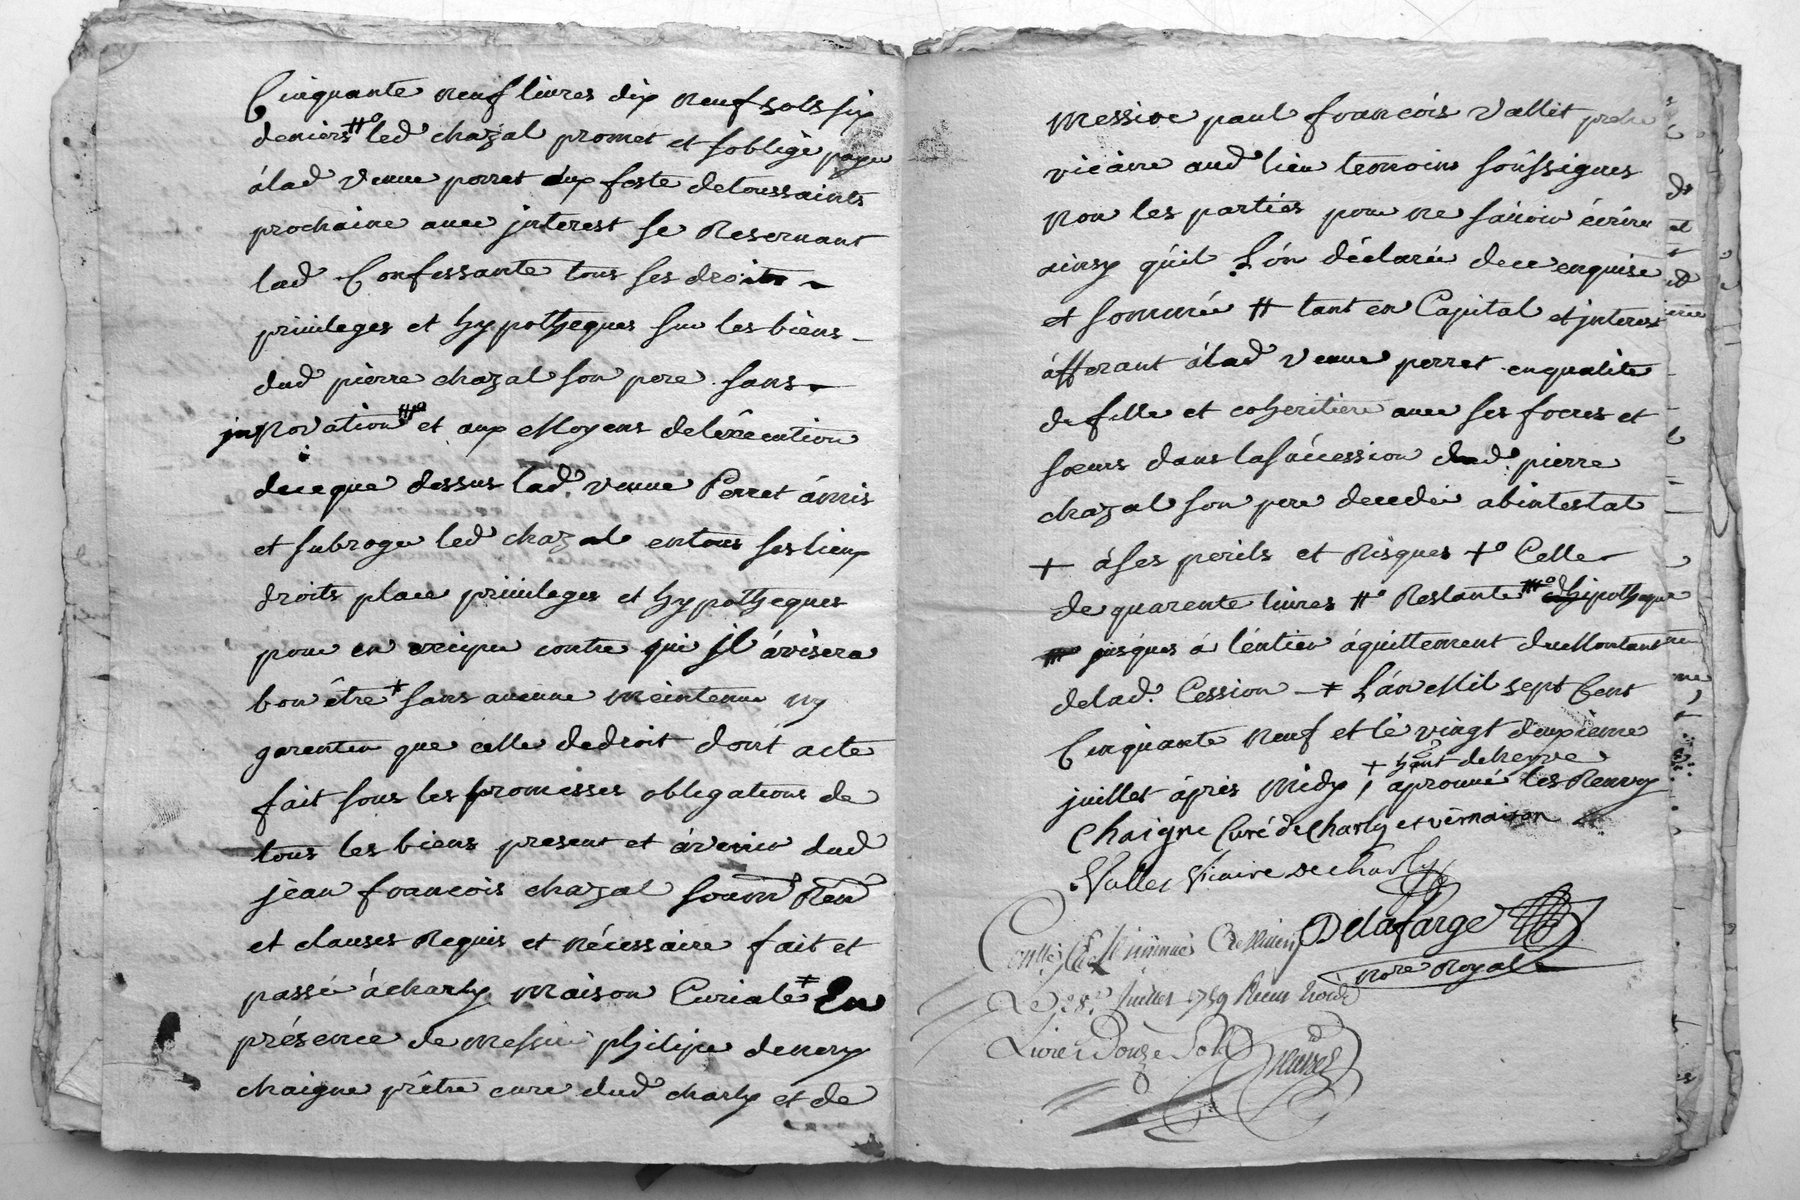 Cinquante neuf livres dix neuf sols six
deniers #° led chazal promet et soblige payer
a lad veuve perret aux feste de toussaints
prochaine avec jnterest se Reservant
lad Confessante tous ses droits
privileges et hypotheques sur les biens
dud pierre chazal son pere sans
jnnovation et aux Moyens de léxecution
de ce que dessus lad. veuve Perret á mis
et subroge led chazal en tous ses lieux
droits place privileges et hypotheques
pour en exciper contre qui jl ávisera
bon être + sans aucune meintenue ny
garentie que celle de droit dont acte
fait sous les promesses obligations de
tous les biens present et ávenir dud
jean francois chazal soum Ren
et clauses Requis et nécessaire fait et
passé á charly Maison Curiale ‡ En
présence de messire philipe denery
chaigne prêtre cure dud charly et de
Messire paul francóis Vallet pretre
vicaire aud lieu temoins soussignes
Non les parties pour ne sávoir écrire
ainsy quil L'ón déclarée de ce enquise
et sommée # tant en Capital et jnterest
áfferant á lad veuve perret en qualité
de fille et coheritiere avec ses freres et
sœurs dans la súccession dud. pierre
chazal son pere decedé abintestat
+ á ses perils et Risques +° Celle
de quarente livres #° Restante hipotheque
jusques á léntier áquittement du Montant
de lad. Cession + L'án Mil sept Cent
Cinquante Neuf et le vingt deuxieme
+ haut de
juillet áprés Midy, áprouvé les Renvoy
Chaigne Curé de Charly et vernaison
Vallet Vicaire de charly
Delafarge
Nore Royal
Le 28e Juillet 1759 Recu
Livre Douze Sols